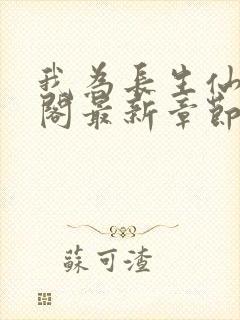 我為長生仙
閣最新章節
蘇可渣